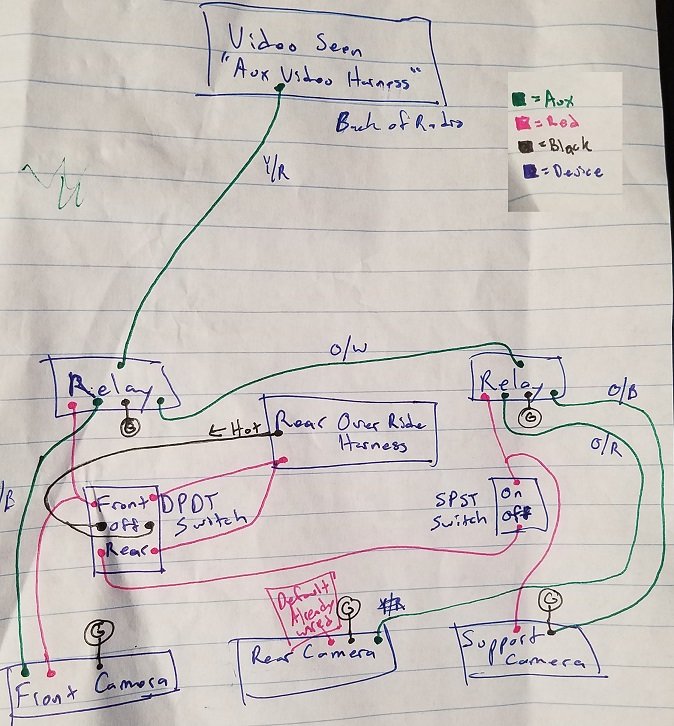 Video Seen
"Aux Video Harness"
Back of Radio
= Aux
= Red
= Black
= Device
Y/R
O/W
Relay
G
Relay
G
O/B
O/R
← Hot
Rear Over Ride
Harness
/B
Front
off
Rear
DPDT
Switch
SPST
Switch
On
Off
Default
Already
wired
G
G
G
Front Camera
Rear Camera
Support
Camera